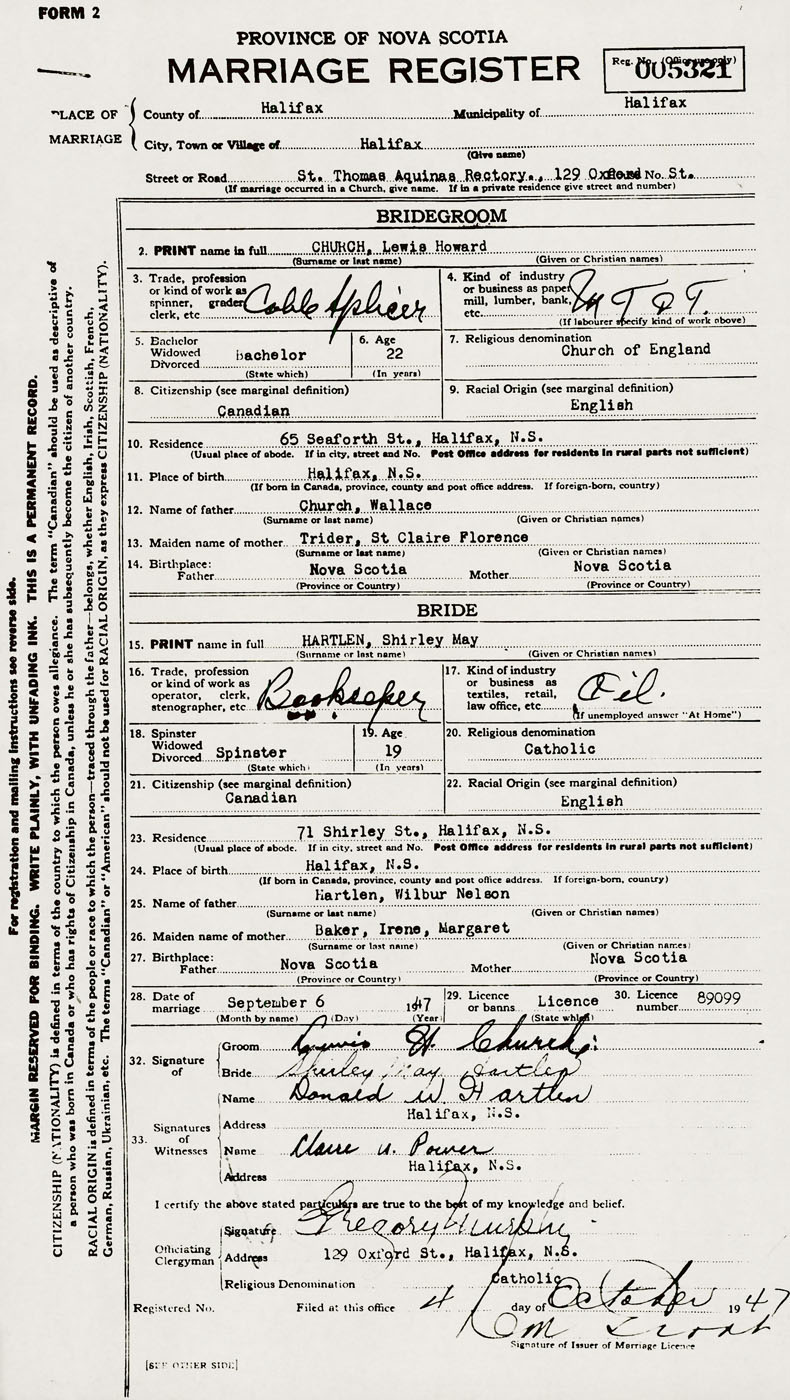 FORM 2
PROVINCE OF NOVA SCOTIA
MARRIAGE REGISTER
Reg. No. (Office use only)
005321
PLACE OF MARRIAGE
County of Halifax Municipality of Halifax
City, Town or Village of Halifax
(Give name)
Street or Road St. Thomas Aquinas Rectory., 129 Oxford No. St.
(If marriage occurred in a Church, give name. If in a private residence give street and number)
BRIDEGROOM
2. PRINT name in full CHURCH, Lewis Howard
(Surname or last name) (Given or Christian names)
3. Trade, profession or kind of work as spinner, grader clerk, etc Cable Splicer
4. Kind of industry or business as paper mill, lumber, bank, etc. M T & T.
(If labourer specify kind of work above)
5. Bachelor Widowed Divorced bachelor
(State which)
6. Age 22
(In years)
7. Religious denomination
Church of England
8. Citizenship (see marginal definition)
Canadian
9. Racial Origin (see marginal definition)
English
10. Residence 65 Seaforth St., Halifax, N.S.
(Usual place of abode. If in city, street and No. Post Office address for residents in rural parts not sufficient)
11. Place of birth Halifax, N.S.
(If born in Canada, province, county and post office address. If foreign-born, country)
12. Name of father Church, Wallace
(Surname or last name) (Given or Christian names)
13. Maiden name of mother Trider, St Claire Florence
(Surname or last name) (Given or Christian names)
14. Birthplace: Father Nova Scotia Mother Nova Scotia
(Province or Country) (Province or Country)
BRIDE
15. PRINT name in full HARTLEN, Shirley May
(Surname or last name) (Given or Christian names)
16. Trade, profession or kind of work as operator, clerk, stenographer, etc Bookkeeper
17. Kind of industry or business as textiles, retail, law office, etc. Oil.
(If unemployed answer "At Home")
18. Spinster Widowed Divorced Spinster
(State which)
19. Age 19
(In years)
20. Religious denomination
Catholic
21. Citizenship (see marginal definition)
Canadian
22. Racial Origin (see marginal definition)
English
23. Residence 71 Shirley St., Halifax, N.S.
(Usual place of abode. If in city, street and No. Post Office address for residents in rural parts not sufficient)
24. Place of birth Halifax, N.S.
(If born in Canada, province, county and post office address. If foreign-born, country)
25. Name of father Hartlen, Wilbur Nelson
(Surname or last name) (Given or Christian names)
26. Maiden name of mother Baker, Irene, Margaret
(Surname or last name) (Given or Christian names)
27. Birthplace: Father Nova Scotia Mother Nova Scotia
(Province or Country) (Province or Country)
28. Date of marriage September 6 1947
(Month by name) (Day) (Year)
29. Licence or banns Licence
(State which)
30. Licence number 89099
32. Signature of
Groom Lewis H. Church
Bride Shirley May Hartlen
33. Signatures of Witnesses
Name Donald W Hartlen
Address Halifax, N.S.
Name Claire M. Power
Address Halifax, N.S.
I certify the above stated particulars are true to the best of my knowledge and belief.
Officiating Clergyman
Signature Gregory Murphy
Address 129 Oxford St., Halifax, N.S.
Religious Denomination Catholic
Registered No. Filed at this office 4 day of October 1947
Signature of Issuer of Marriage Licence
[SEE OTHER SIDE]
For registration and mailing instructions see reverse side.
MARGIN RESERVED FOR BINDING. WRITE PLAINLY, WITH UNFADING INK. THIS IS A PERMANENT RECORD.
CITIZENSHIP (NATIONALITY) is defined in terms of the country to which the person owes allegiance. The term "Canadian" should be used as descriptive of
a person who was born in Canada or who has rights of Citizenship in Canada, unless he or she has subsequently become the citizen of another country.
RACIAL ORIGIN is defined in terms of the people or race to which the person—traced through the father—belongs, whether English, Irish, Scottish, French,
German, Russian, Ukrainian, etc. The terms "Canadian" or "American" should not be used for RACIAL ORIGIN, as they express CITIZENSHIP (NATIONALITY).